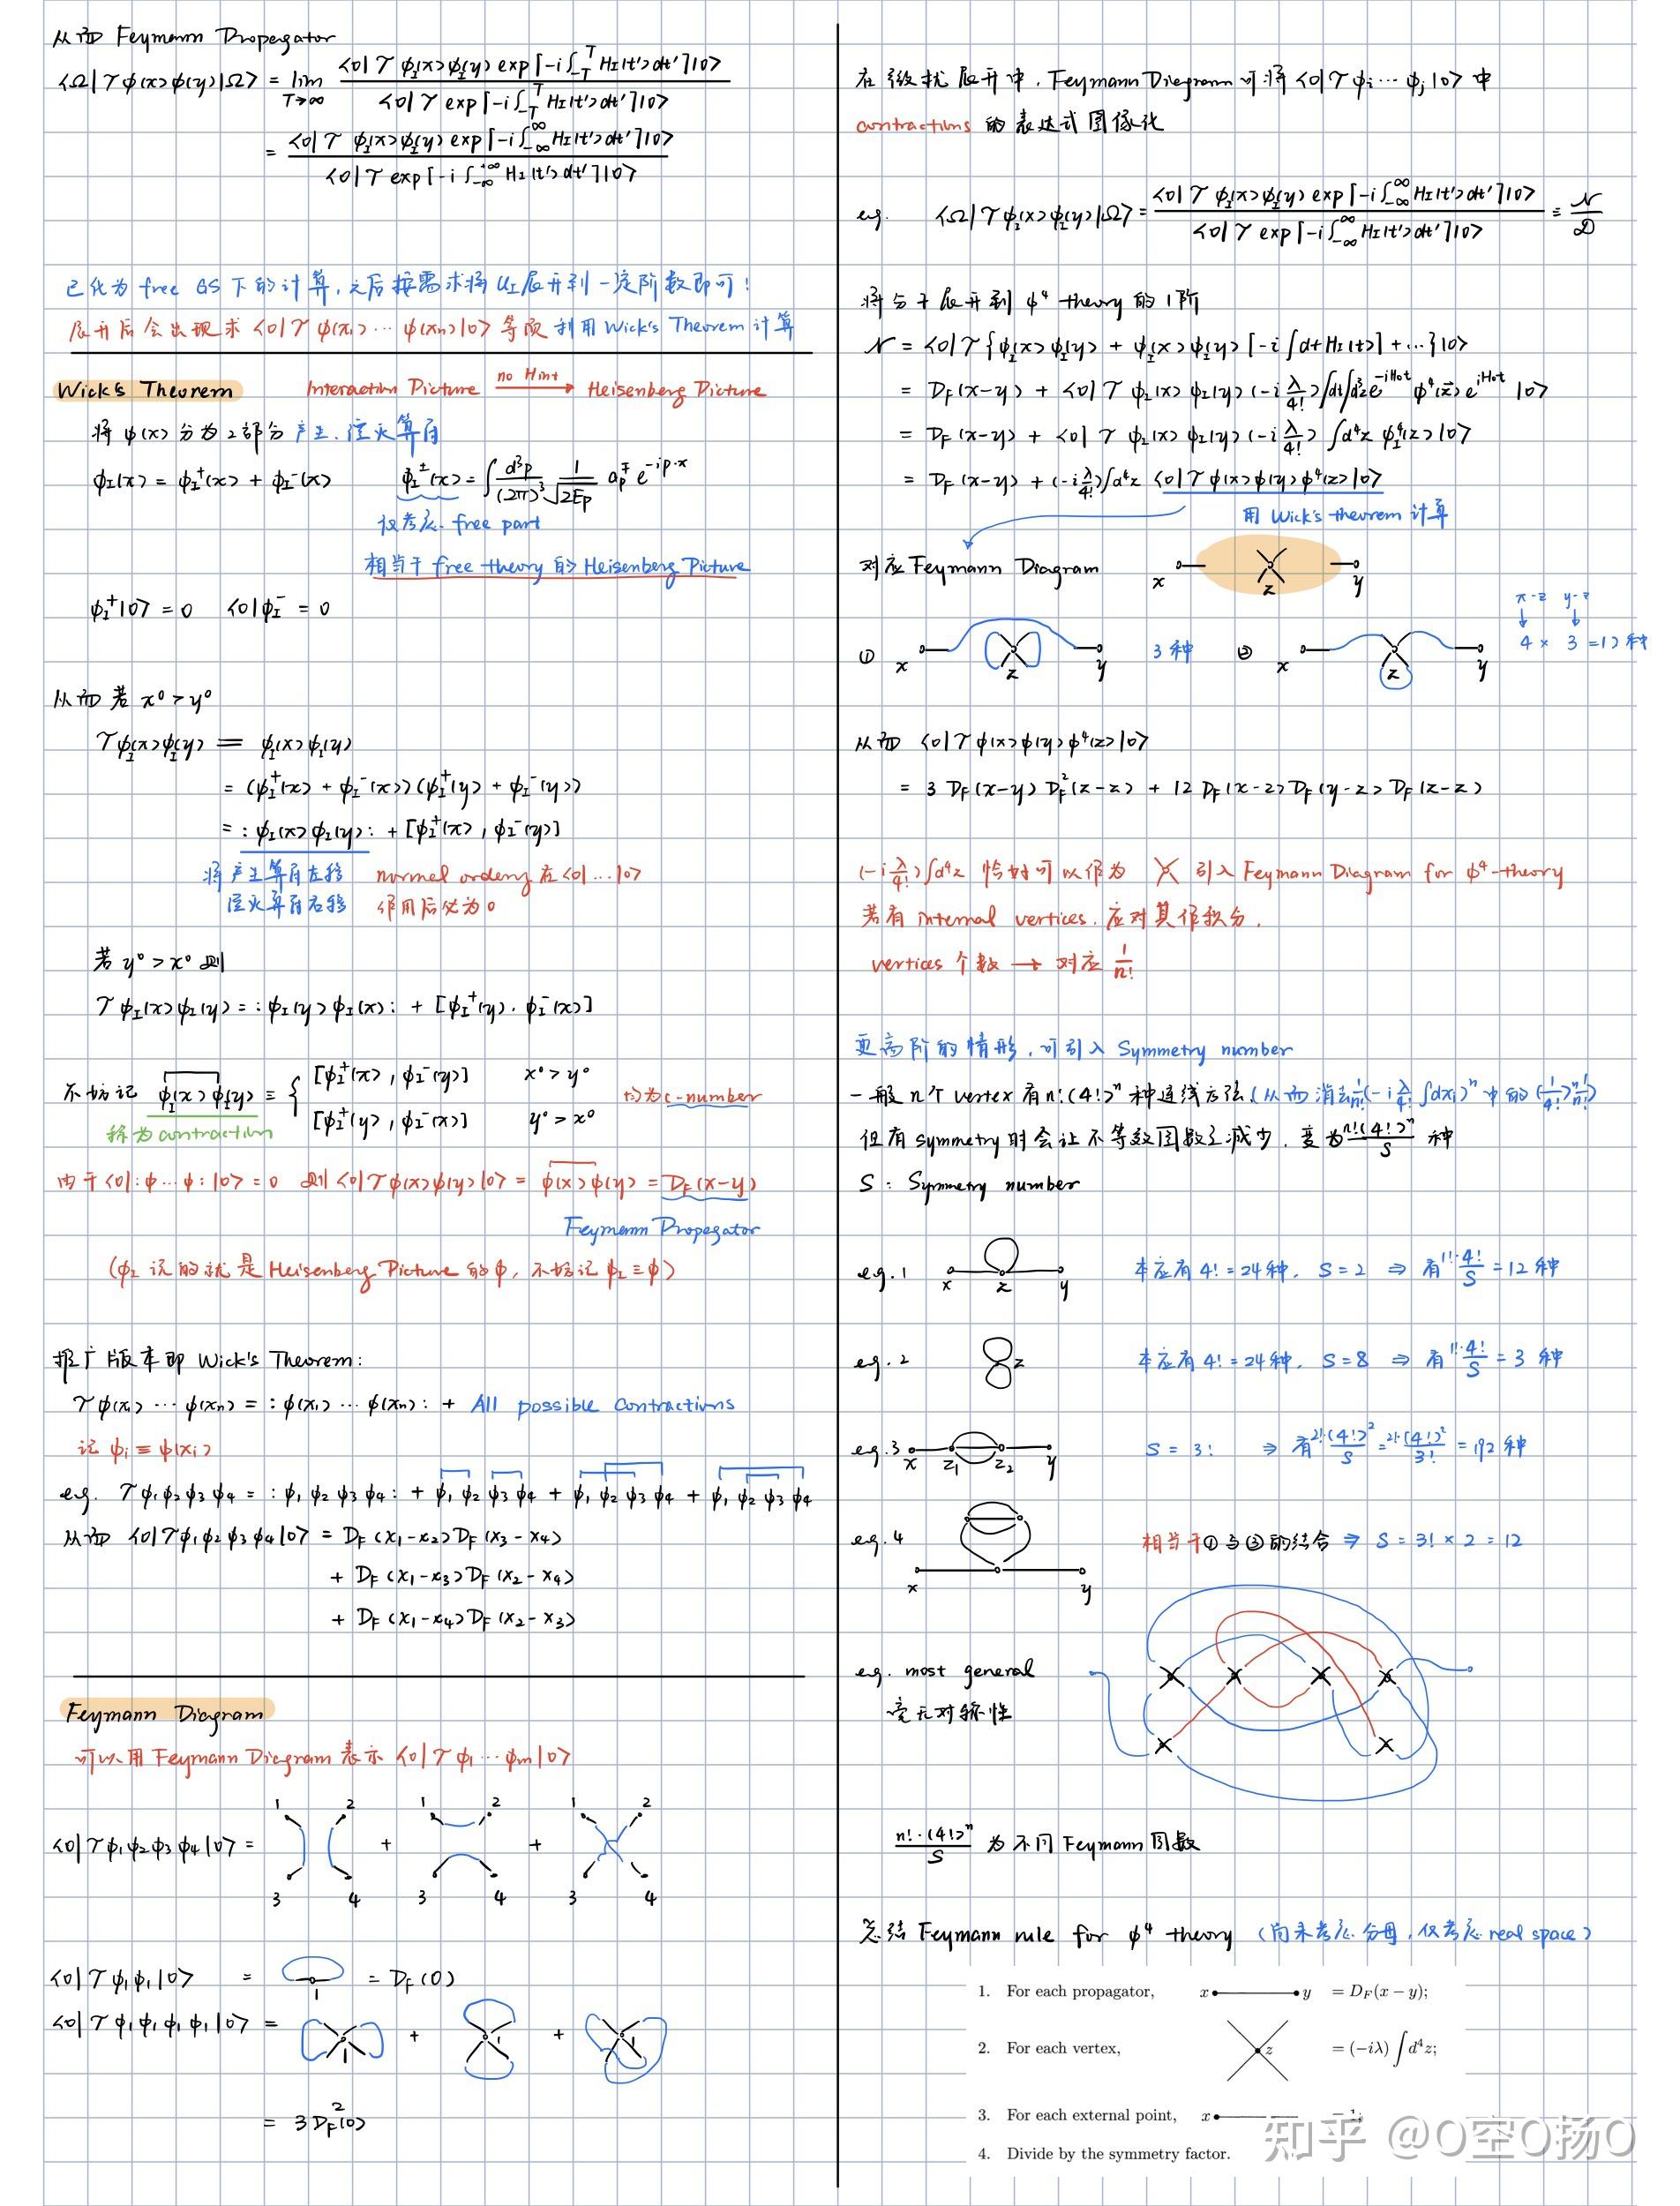 从而 Feymann Propegator
<Ω|T φ(x)φ(y)|Ω> = lim T→∞ <0|T φ_I(x)φ_I(y) exp[-i∫_{-T}^{T} H_I(t')dt']|0> / <0|T exp[-i∫_{-T}^{T} H_I(t')dt']|0>
= <0|T φ_I(x)φ_I(y) exp[-i∫_{-∞}^{∞} H_I(t')dt']|0> / <0|T exp[-i∫_{-∞}^{+∞} H_I(t')dt']|0>
已化为 free GS 下的计算,之后按需求将 U_I 展开到一定阶数即可!
展开后会出现求 <0|T φ(x₁)⋯φ(xₙ)|0> 等项 利用 Wick's Theorem 计算
Wick's Theorem Interaction Picture no Hint → Heisenberg Picture
将 φ(x) 分为2部分 产生、湮灭算符
φ_I(x) = φ_I⁺(x) + φ_I⁻(x) φ_I^±(x) = ∫ d³p/(2π)³ 1/√2Ep a_p^∓ e^{-ip·x}
仅考虑 free part
相当于 free theory 的 Heisenberg Picture
φ_I⁺|0> = 0 <0|φ_I⁻ = 0
从而若 x⁰ > y⁰
Tφ_I(x)φ_I(y) = φ_I(x)φ_I(y)
= (φ_I⁺(x) + φ_I⁻(x))(φ_I⁺(y) + φ_I⁻(y))
= :φ_I(x)φ_I(y): + [φ_I⁺(x), φ_I⁻(y)]
将产生算符左移 normal ordering 在<0|…|0>
湮灭算符右移 作用后必为0
若 y⁰ > x⁰ 则
T φ_I(x)φ_I(y) = :φ_I(y)φ_I(x): + [φ_I⁺(y), φ_I⁻(x)]
不妨记 φ_I(x)φ_I(y) ≡ { [φ_I⁺(x), φ_I⁻(y)] x⁰ > y⁰ 均为c-number
[φ_I⁺(y), φ_I⁻(x)] y⁰ > x⁰
称为 contraction
由于<0|:φ⋯φ:|0> = 0 则<0|Tφ(x)φ(y)|0> = φ(x)φ(y) = D_F(x-y)
Feymann Propegator
(φ_I 说的就是 Heisenberg Picture 的 φ, 不妨记 φ_I ≡ φ)
推广版本即 Wick's Theorem:
Tφ(x₁)⋯φ(xₙ) = :φ(x₁)⋯φ(xₙ): + All possible Contractions
记 φ_i ≡ φ(x_i)
eg. Tφ₁φ₂φ₃φ₄ = :φ₁φ₂φ₃φ₄: + φ₁φ₂φ₃φ₄ + φ₁φ₂φ₃φ₄ + φ₁φ₂φ₃φ₄
从而 <0|Tφ₁φ₂φ₃φ₄|0> = D_F(x₁-x₂)D_F(x₃-x₄)
+ D_F(x₁-x₃)D_F(x₂-x₄)
+ D_F(x₁-x₄)D_F(x₂-x₃)
Feymann Diagram
可以用 Feymann Diagram 表示 <0|Tφ₁⋯φm|0>
1 2 1 2 1 2
<0|Tφ₁φ₂φ₃φ₄|0> = + +
3 4 3 4 3 4
<0|Tφ₁φ₁|0> = 1 = D_F(0)
<0|Tφ₁φ₁φ₁φ₁|0> = 1 + 1 + 1
= 3D_F²(0)
在微扰展开中, Feymann Diagram 可将 <0|Tφ_i⋯φ_j|0> 中
contractions 的表达式图像化
eg. <Ω|Tφ_I(x)φ_I(y)|Ω> = <0|T φ_I(x)φ_I(y) exp[-i∫_{-∞}^{∞} H_I(t')dt']|0> / <0|T exp[-i∫_{-∞}^{∞} H_I(t')dt']|0> ≡ N/D
将分子展开到 φ⁴ theory 的1阶
N = <0|T{φ_I(x)φ_I(y) + φ_I(x)φ_I(y)[-i∫dt H_I(t)] + ⋯}|0>
= D_F(x-y) + <0|T φ_I(x)φ_I(y)(-i λ/4!)∫dt∫d³z e^{-iH₀t} φ⁴(z⃗) e^{iH₀t}|0>
= D_F(x-y) + <0|T φ_I(x)φ_I(y)(-i λ/4!)∫d⁴z φ_I⁴(z)|0>
= D_F(x-y) + (-i λ/4!)∫d⁴z <0|Tφ(x)φ(y)φ⁴(z)|0>
用 Wick's theorem 计算
对应 Feymann Diagram x z y
x-z y-z
① x z y 3种 ② x z y 4 × 3 = 12种
从而 <0|Tφ(x)φ(y)φ⁴(z)|0>
= 3 D_F(x-y) D_F²(z-z) + 12 D_F(x-z) D_F(y-z) D_F(z-z)
(-i λ/4!)∫d⁴z 恰好可以作为 引入 Feymann Diagram for φ⁴-theory
若有 internal vertices, 应对其作积分.
vertices 个数 → 对应 1/n!
更高阶的情形,可引入 Symmetry number
一般 n 个 vertex 有 n!(4!)ⁿ 种连线方法(从而消去 1/n!(-i λ/4! ∫dx_i)ⁿ 中的 (1/4!)ⁿ 1/n!)
但有 symmetry 时会让不等效图数减少, 变为 n!(4!)ⁿ/S 种
S : Symmetry number
eg. 1 x z y 本应有 4! = 24种, S = 2 ⇒ 有 1!·4!/S = 12种
eg. 2 z 本应有 4! = 24种, S = 8 ⇒ 有 1!·4!/S = 3 种
eg. 3 x z₁ z₂ y S = 3! ⇒ 有 2!·(4!)²/S = 2!·(4!)²/3! = 192种
eg. 4 x y 相当于①与③的结合 ⇒ S = 3! × 2 = 12
eg. most general
毫无对称性
n!·(4!)ⁿ/S 为不同 Feymann 图数
总结 Feymann rule for φ⁴ theory (尚未考虑分母, 仅考虑 real space)
1. For each propagator, x y = D_F(x − y);
2. For each vertex, z = (−iλ) ∫ d⁴z;
3. For each external point, x = 1;
4. Divide by the symmetry factor.
知乎 @O空O扬O